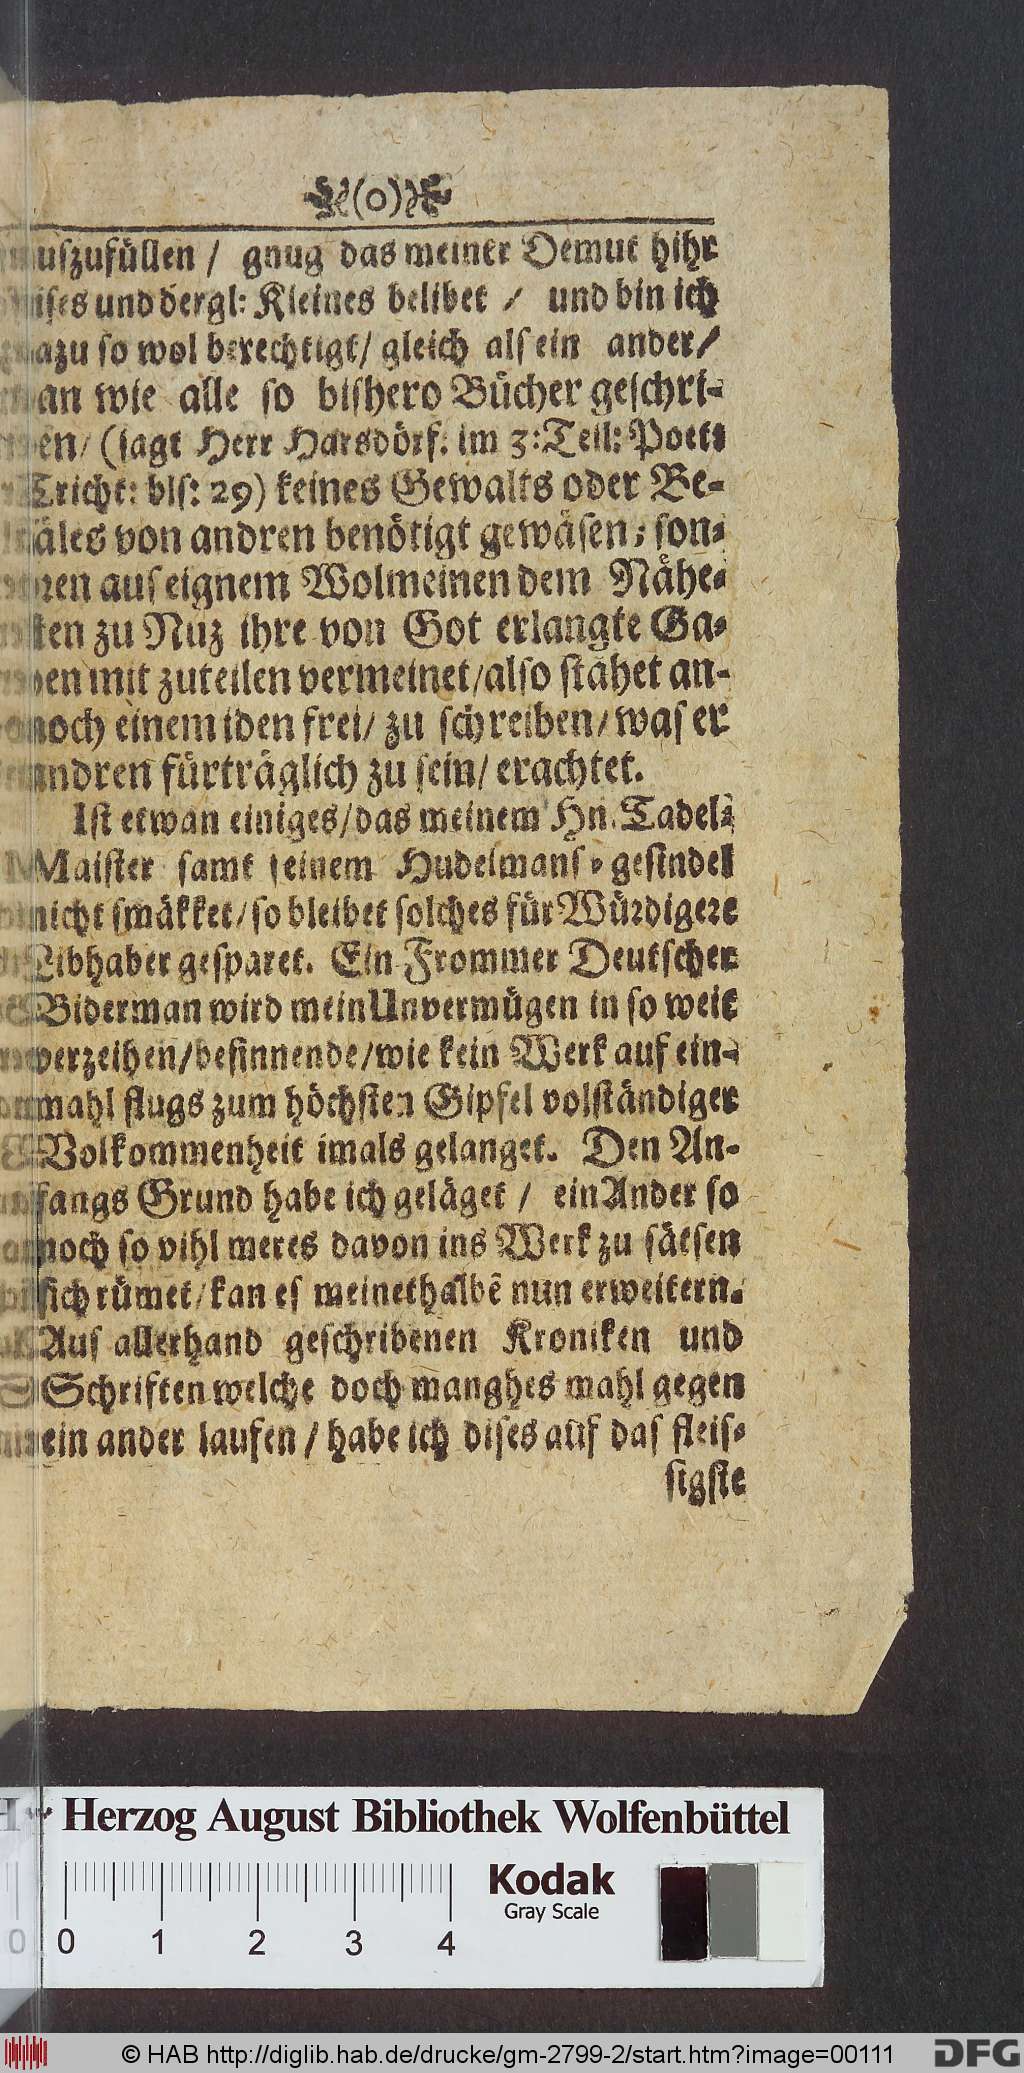 (o)
auszufüllen / gnug das meiner Demut hihr
und dergl: Kleines belibet / und bin ich
dazu so wol berechtigt/ gleich als ein ander/
wie alle so bishero Bücher geschri-
ben/ (sagt Herr Harsdörf. im 3: Teil: Poet:
Tricht: bls: 29) keines Gewalts oder Be-
von andren benötigt gewäsen; son-
aus eignem Wolmeinen dem Nähe-
sten zu Nuz ihre von Got erlangte Ga-
ben mit zuteilen vermeinet/also stähet an-
noch einem iden frei/ zu schreiben/ was er
andren fürträglich zu sein/ erachtet.
Ist etwan einiges/das meinem Hn. Tadel-
Maister samt seinem Hudelmans-gesindel
nicht smäkket/so bleibet solches für Würdigere
Libhaber gesparet. Ein Frommer Deutscher
Biderman wird mein Unvermügen in so weit
verzeihen/besinnende/wie kein Werk auf ein-
mahl flugs zum höchsten Gipfel volständiger
Volkommenheit imals gelanget. Den An-
fangs Grund habe ich geläget / ein Ander so
noch so vihl meres davon ins Werk zu sätsen
sich rümet/kan es meinethalbẽ nun erweitern.
Aus allerhand geschribenen Kroniken und
Schriften welche doch manghes mahl gegen
ein ander laufen / habe ich dises auf das fleis-
sigste
Herzog August Bibliothek Wolfenbüttel
Kodak
Gray Scale
0 0 1 2 3 4
© HAB http://diglib.hab.de/drucke/gm-2799-2/start.htm?image=00111
DFG